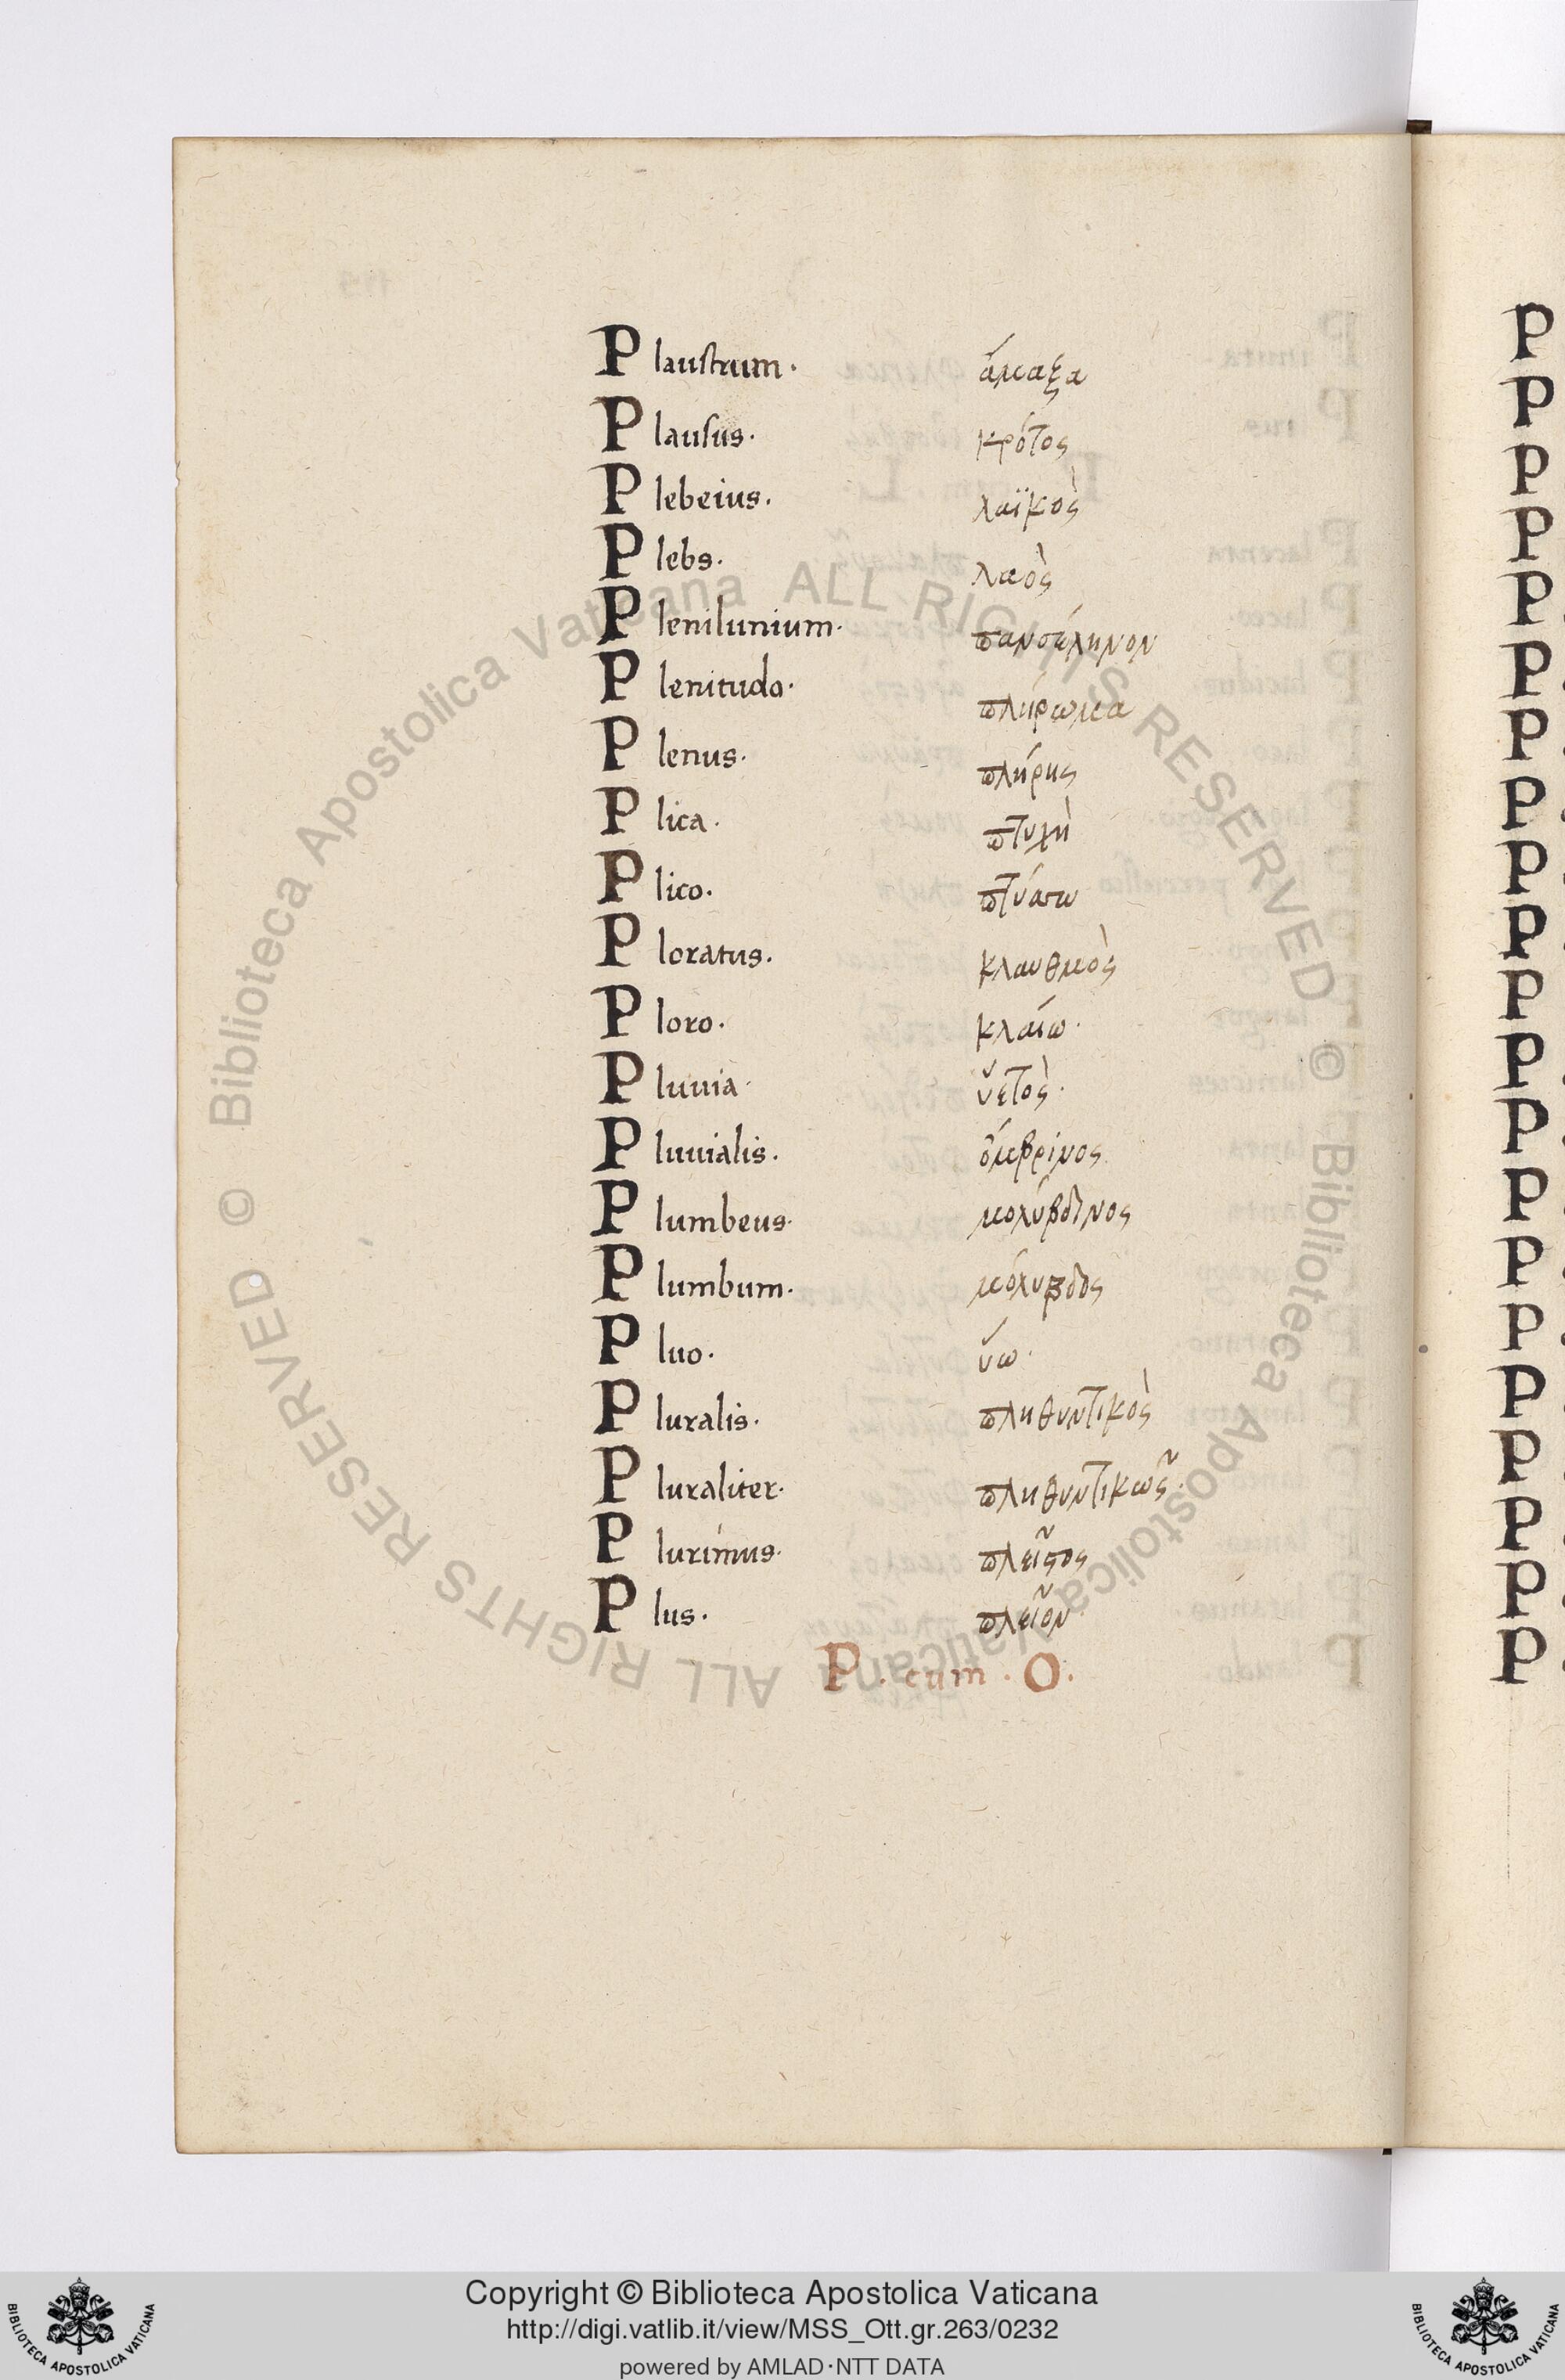 Plaustrum. ἅμαξα
Plausus. κρότος
Plebeius. λαϊκὸς
Plebs. λαὸς
Plenilunium. πανσέληνον
Plenitudo. πλήρωμα
Plenus. πλήρης
Plica. πτυχὴ
Plico. πτύσσω
Ploratus. κλαυθμὸς
Ploro. κλαίω.
Pluuia. ὑετὸς.
Pluuialis. ὄμβρινος
Plumbeus. μολύβδινος
Plumbum. μόλυβδος
Pluo. ὕω.
Pluralis. πληθυντικὸς
Pluraliter. πληθυντικῶς.
Plurimus. πλεῖστος
Plus. πλεῖον
P. cum. O.
Copyright © Biblioteca Apostolica Vaticana
http://digi.vatlib.it/view/MSS_Ott.gr.263/0232
powered by AMLAD·NTT DATA
BIBLIOTECA APOSTOLICA VATICANA
BIBLIOTECA APOSTOLICA VATICANA
© Biblioteca Apostolica Vaticana ALL RIGHTS RESERVED © Biblioteca Apostolica Vaticana ALL RIGHTS RESERVED